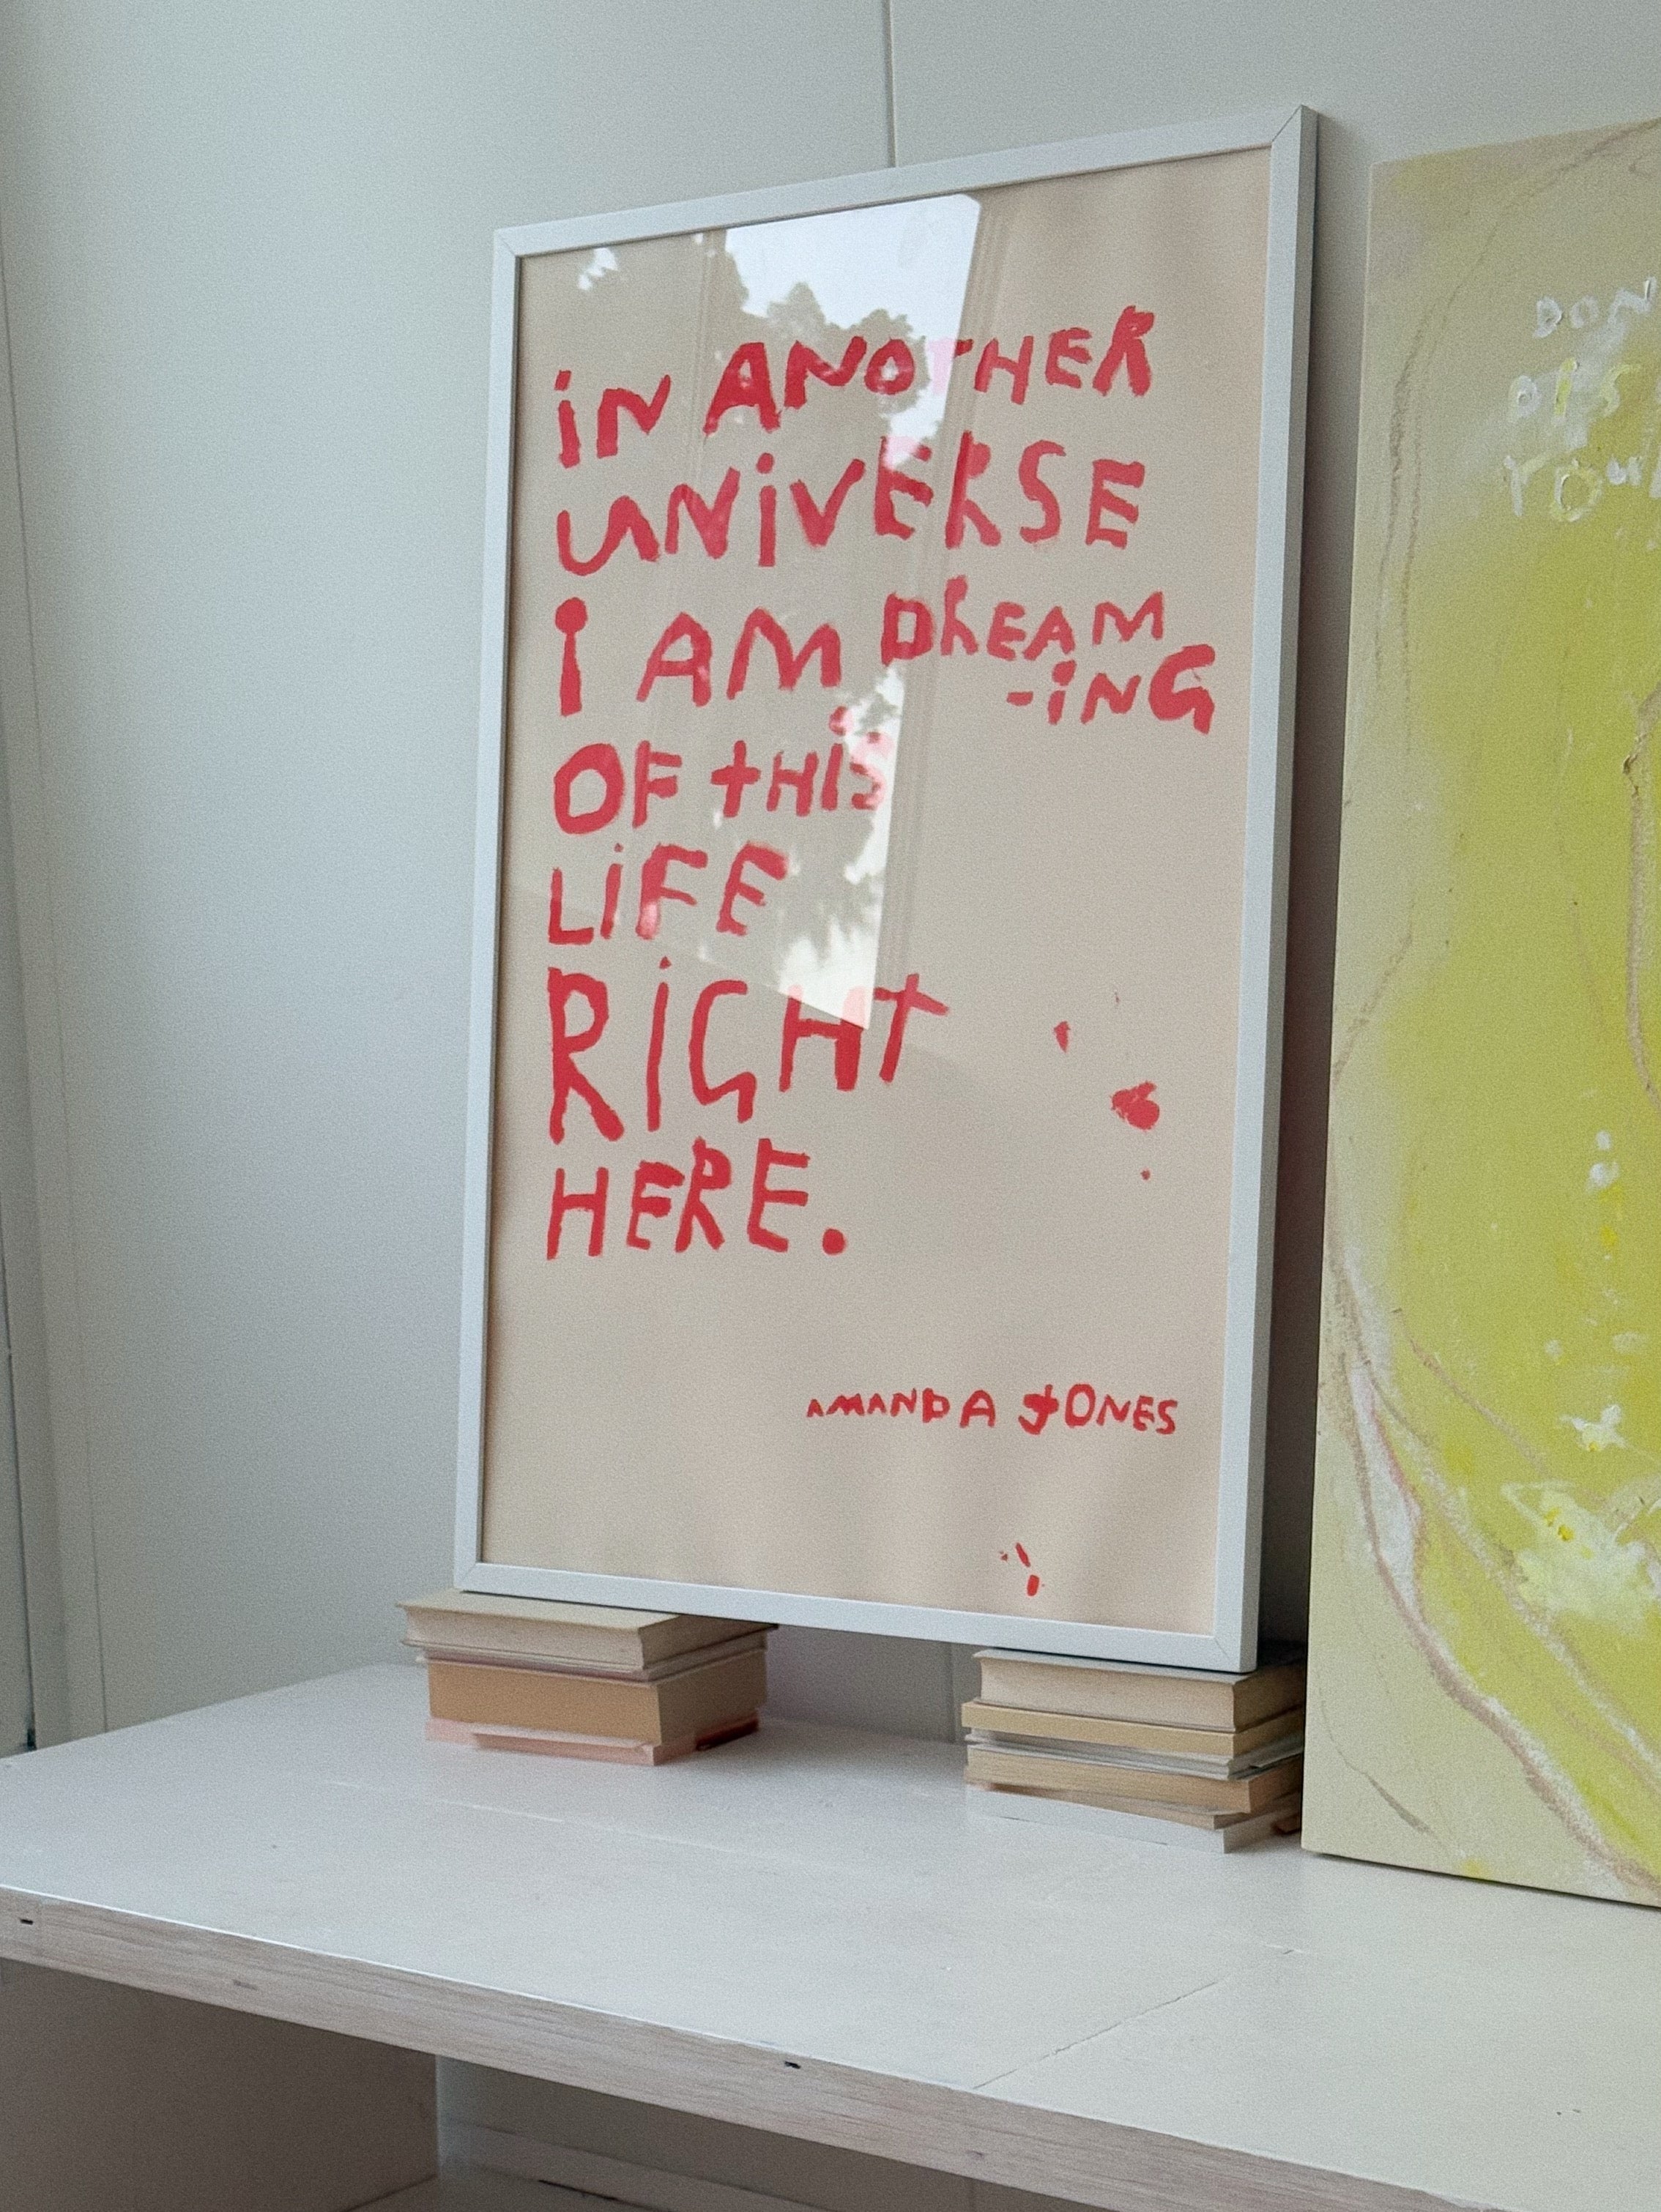 iN ANOTHER
UNiVERSE
I AM DREAM
-iNG
OF tHiS
LiFE
RiGHT
HERE.
AMANDA JONES
DON
DIS
TOU